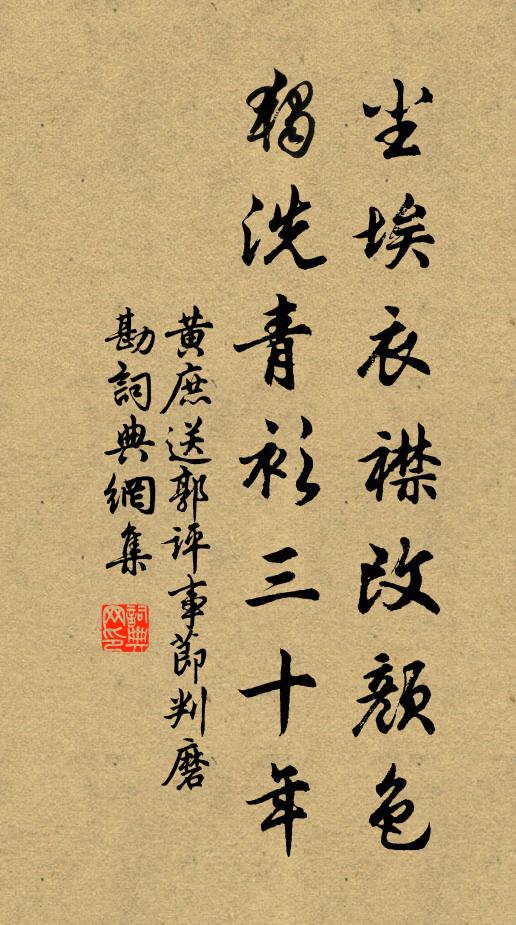 尘埃衣襟改颜色
獨洗青衫三十年
黃庶送郭評事節判磨
勘詞典網集
詞典網印